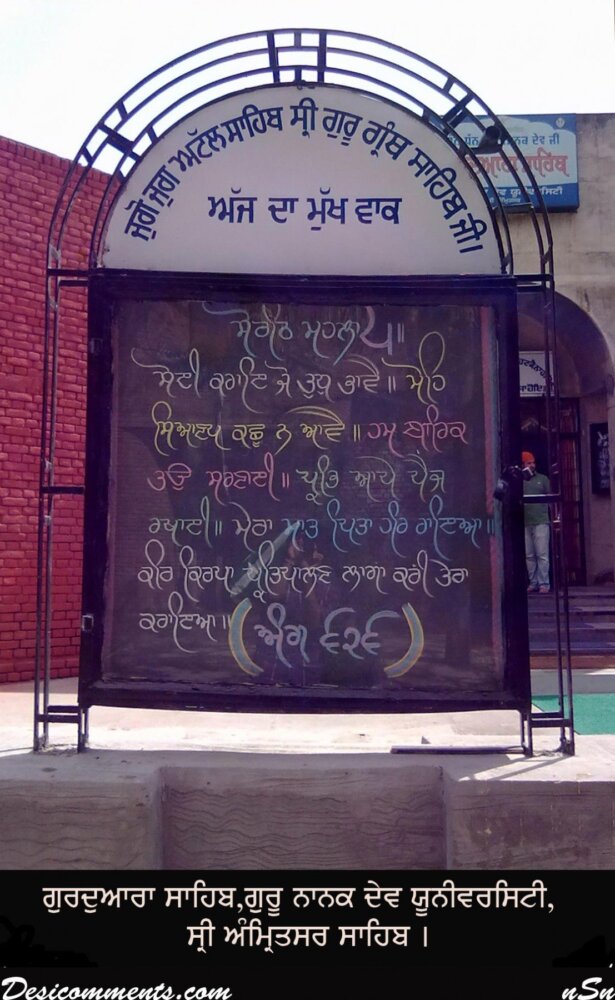 ਜੁਗੋ ਜੁਗ ਅਟੱਲ ਸਾਹਿਬ ਸ੍ਰੀ ਗੁਰੂ ਗ੍ਰੰਥ ਸਾਹਿਬ ਜੀ।
ਅੱਜ ਦਾ ਮੁੱਖ ਵਾਕ
ਸੋਰਠਿ ਮਹਲਾ ੫॥
ਸੋਈ ਕਰਾਇ ਜੋ ਤੁਧੁ ਭਾਵੈ॥ ਮੋਹਿ
ਸਿਆਣਪ ਕਛੂ ਨ ਆਵੈ॥ ਹਮ ਬਾਰਿਕ
ਤਉ ਸਰਣਾਈ॥ ਪ੍ਰਭਿ ਆਪੇ ਪੈਜ
ਰਖਾਈ॥ ਮੇਰਾ ਮਾਤ ਪਿਤਾ ਹਰਿ ਰਾਇਆ॥
ਕਰਿ ਕਿਰਪਾ ਪ੍ਰਤਿਪਾਲਣ ਲਾਗਾ ਕਰੀ ਤੇਰਾ
ਕਰਾਇਆ॥ (ਅੰਗ ੬੨੬)
ਨਾਨਕ ਦੇਵ ਜੀ
ਸਾਹਿਬ
ਦੇਵ ਯੂਨੀਵਰਸਿਟੀ
ਗੁਰਦੁਆਰਾ ਸਾਹਿਬ,ਗੁਰੂ ਨਾਨਕ ਦੇਵ ਯੂਨੀਵਰਸਿਟੀ,
ਸ੍ਰੀ ਅੰਮ੍ਰਿਤਸਰ ਸਾਹਿਬ ।
Desicomments.com
nSn